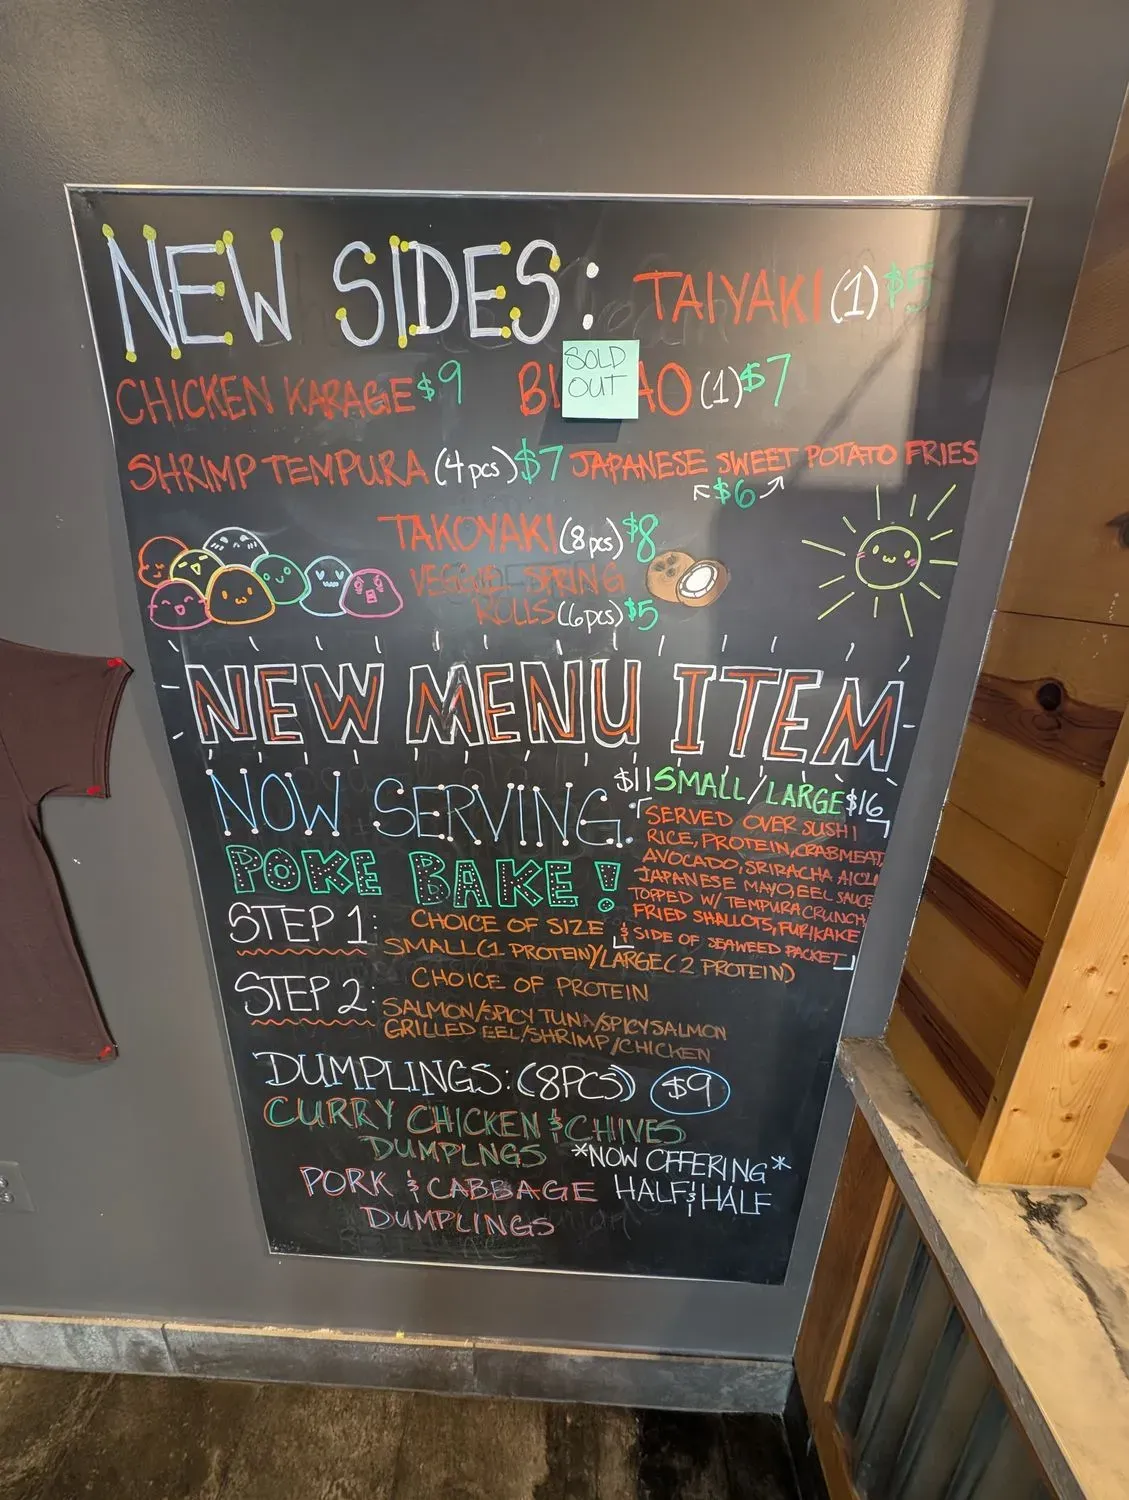 NEW SIDES:
TAIYAKI (1) $5
CHICKEN KARAGE $9
SOLD
OUT
(1) $7
SHRIMP TEMPURA (4pcs) $7
JAPANESE SWEET POTATO FRIES
$6
TAKOYAKI (8pcs) $8
VEGGIE SPRING
ROLLS (6pcs) $5
NEW MENU ITEM
NOW SERVING:
POKE BAKE!
$11 SMALL/LARGE $16
SERVED OVER SUSHI
RICE, PROTEIN, CRABMEAT,
AVOCADO, SRIRACHA AIOLI
JAPANESE MAYO, EEL SAUCE
TOPPED W/ TEMPURA CRUNCH
FRIED SHALLOTS, FURIKAKE
& SIDE OF SEAWEED PACKET
STEP 1: CHOICE OF SIZE
SMALL (1 PROTEIN)/LARGE (2 PROTEIN)
STEP 2: CHOICE OF PROTEIN
SALMON/SPICY TUNA/SPICY SALMON
GRILLED EEL/SHRIMP/CHICKEN
DUMPLINGS: (8PCS) $9
CURRY CHICKEN & CHIVES
DUMPLNGS
PORK & CABBAGE
DUMPLINGS
*NOW OFFERING*
HALF & HALF